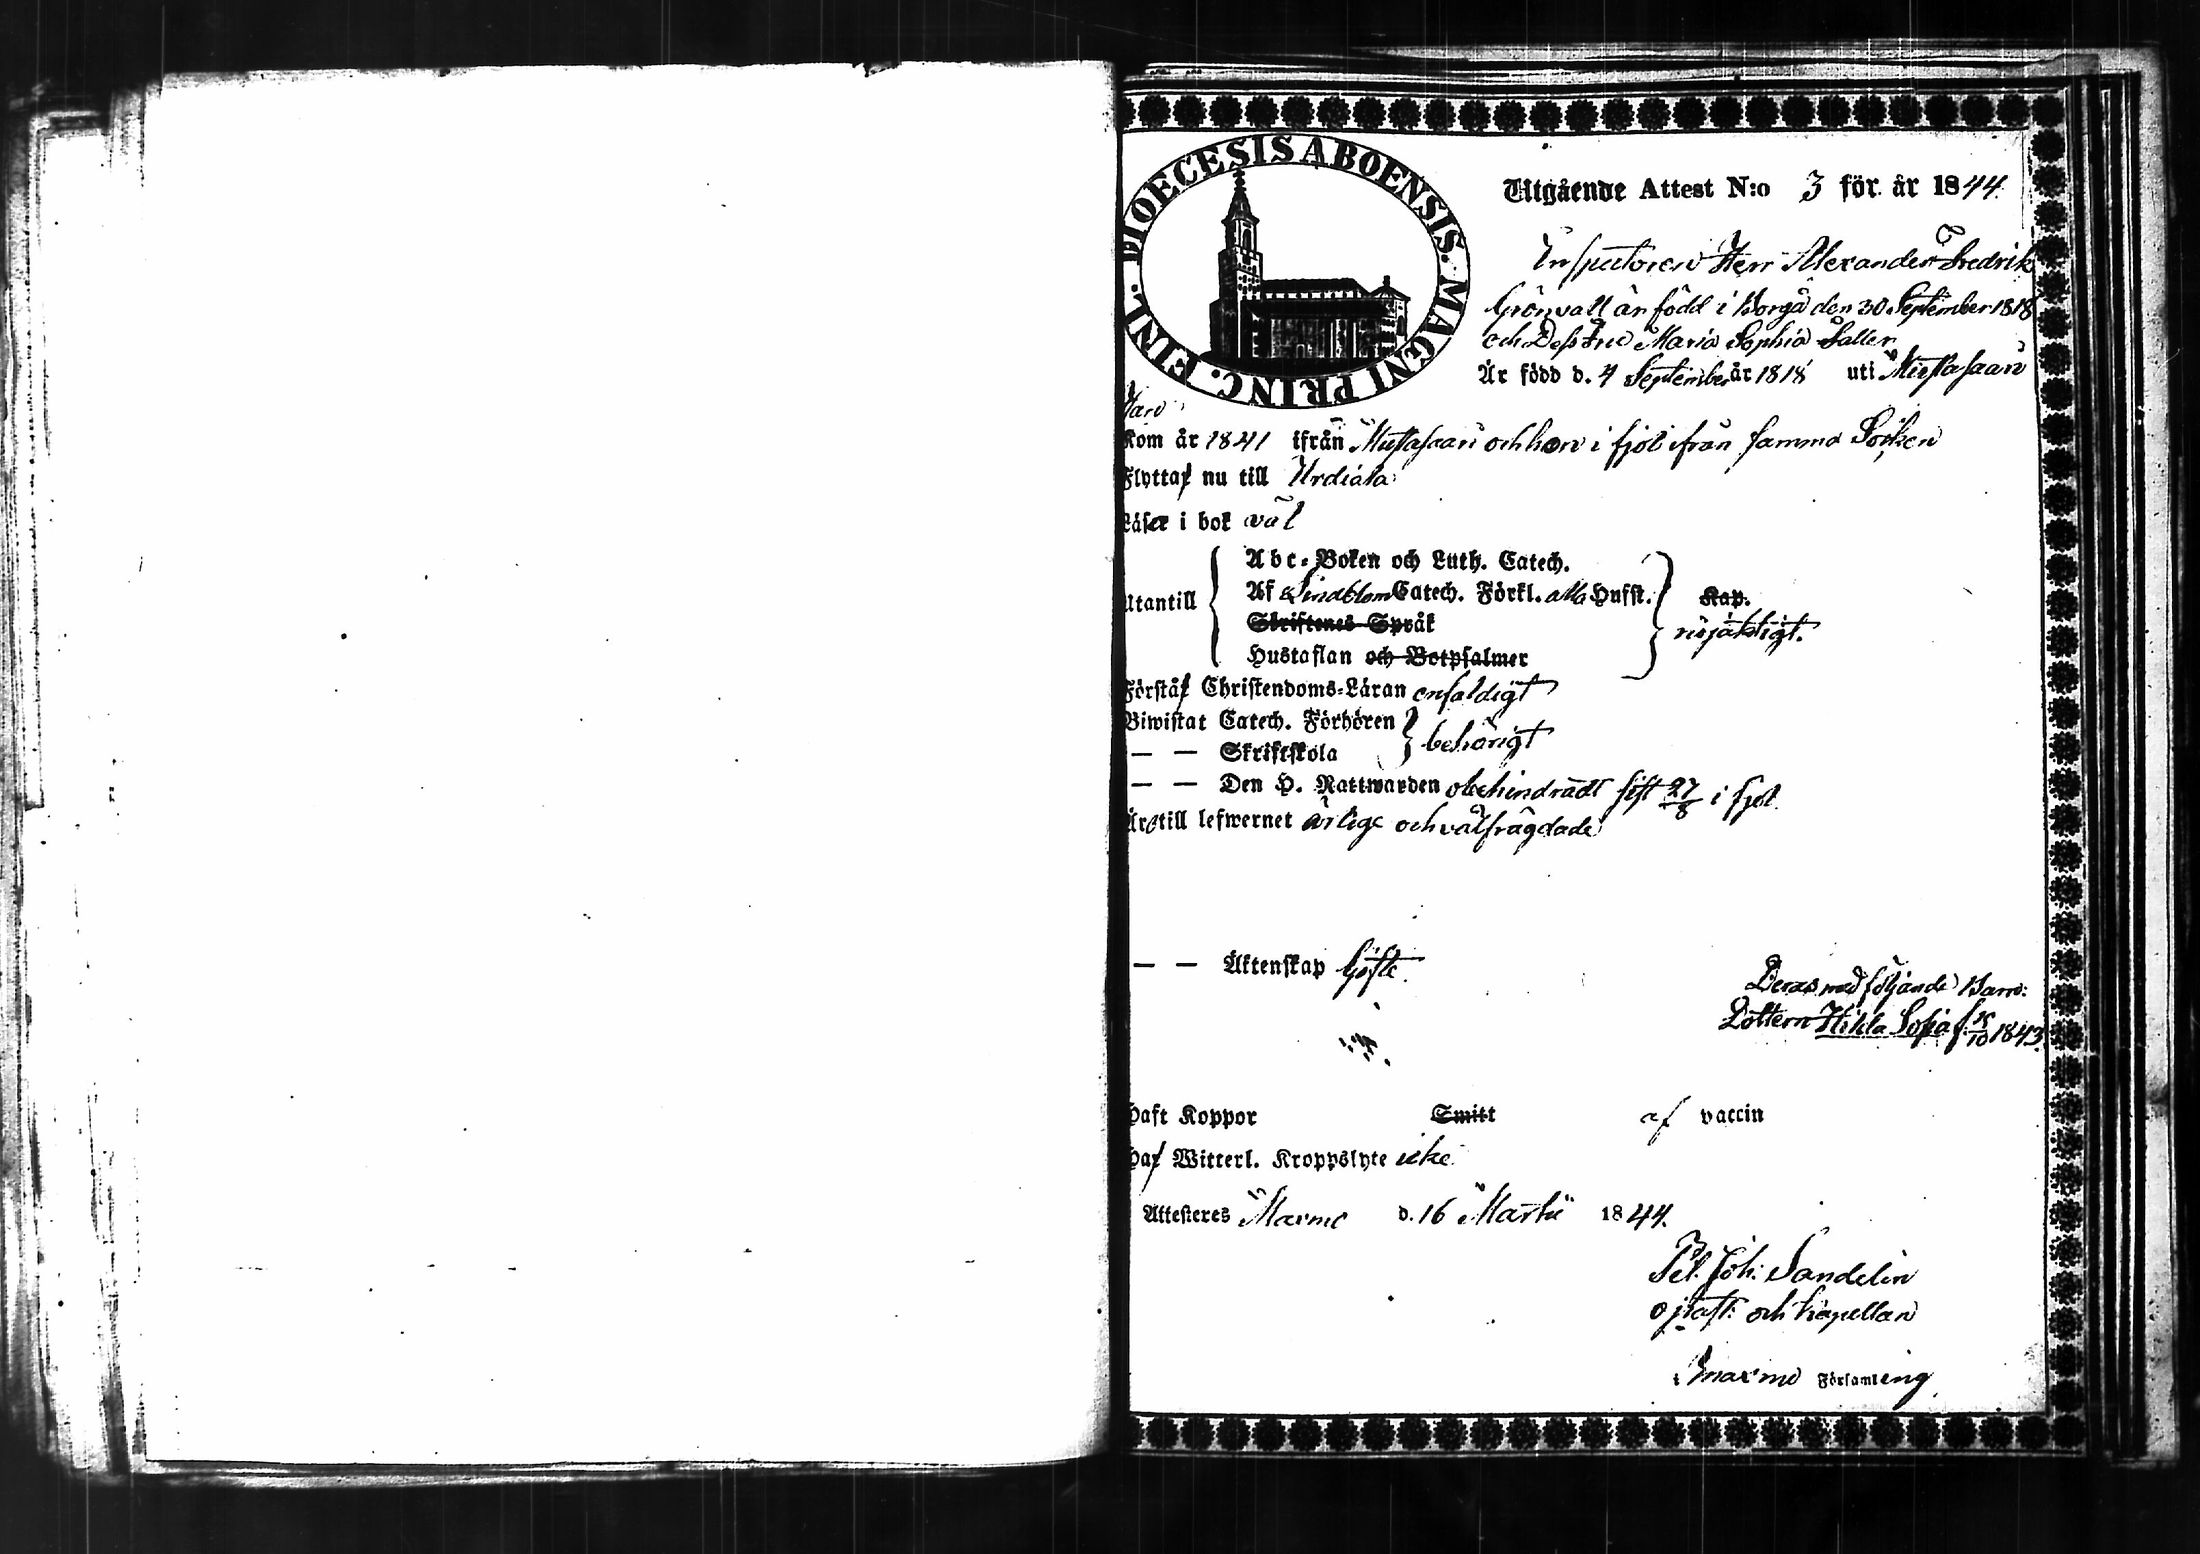 DIOECESIS ABOENSIS. MAGNI PRINC. FINL.
Utgående Attest N:o 3 för år 1844.
Inspectoren Herr Alexander Fredrik
Grönvall är född i Borgå den 30 September 1818
och Dess Fru Maria Sophia
Är född d. 4 September år 1818 uti Mustasaari
Han
Kom år 1841 ifrån Mustasaari och hon i fjol ifrån samma Socken
Flytta nu till Urdiala
Läsa i bok väl
Utantill
Abc-Boken och Luth. Catech.
Af Lindblom Catech. Förkl. alla Hufst. Kap.
Skriftenes Språk
nöjaktigt.
Hustaflan och Botpsalmer
Förstå Christendoms-Läran enfaldigt
Biwistat Catech. Förhören
behörigt
— — Skriftskola
— — Den H. Nattwarden obehindradt sist 27/8 i fjol.
Äro till lefwernet ärlige och välfrägdade
— — Äktenskap Gifte.
Deras medföljande Barn:
Dottern Hilda Sofia f. 1843.
Haft Koppor Smitt af vaccin
Ha Witterl. Kroppslyte icke
Attesteres Marmo d. 16 Martii 1844.
Joh: Sandelin
och Kapellan
Församling